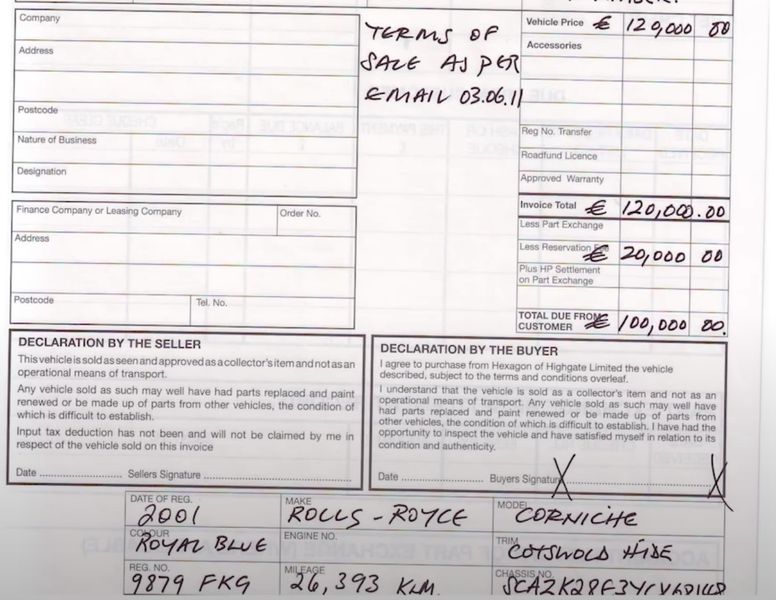 Company
Address
Postcode
Nature of Business
Designation
TERMS OF
SALE AS PER
EMAIL 03.06.11
Vehicle Price € 120,000 00
Accessories
Reg No. Transfer
Roadfund Licence
Approved Warranty
Invoice Total € 120,000.00
Less Part Exchange
Less Reservation Fee € 20,000 00
Plus HP Settlement
on Part Exchange
TOTAL DUE FROM
CUSTOMER € 100,000 00.
Finance Company or Leasing Company Order No.
Address
Postcode Tel. No.
DECLARATION BY THE SELLER
This vehicle is sold as seen and approved as a collector's item and not as an
operational means of transport.
Any vehicle sold as such may well have had parts replaced and paint
renewed or be made up of parts from other vehicles, the condition of
which is difficult to establish.
Input tax deduction has not been and will not be claimed by me in
respect of the vehicle sold on this invoice
Date .................... Sellers Signature ..............................
DECLARATION BY THE BUYER
I agree to purchase from Hexagon of Highgate Limited the vehicle
described, subject to the terms and conditions overleaf.
I understand that the vehicle is sold as a collector's item and not as an
operational means of transport. Any vehicle sold as such may well have
had parts replaced and paint renewed or be made up of parts from
other vehicles, the condition of which is difficult to establish. I have had the
opportunity to inspect the vehicle and have satisfied myself in relation to its
condition and authenticity.
Date .................... Buyers Signature X .............................. X
DATE OF REG. MAKE MODEL
2001 ROLLS-ROYCE CORNICHE
COLOUR ENGINE NO. TRIM
ROYAL BLUE COTSWOLD HIDE
REG. NO. MILEAGE CHASSIS NO.
9879 FKG 26,393 KLM.